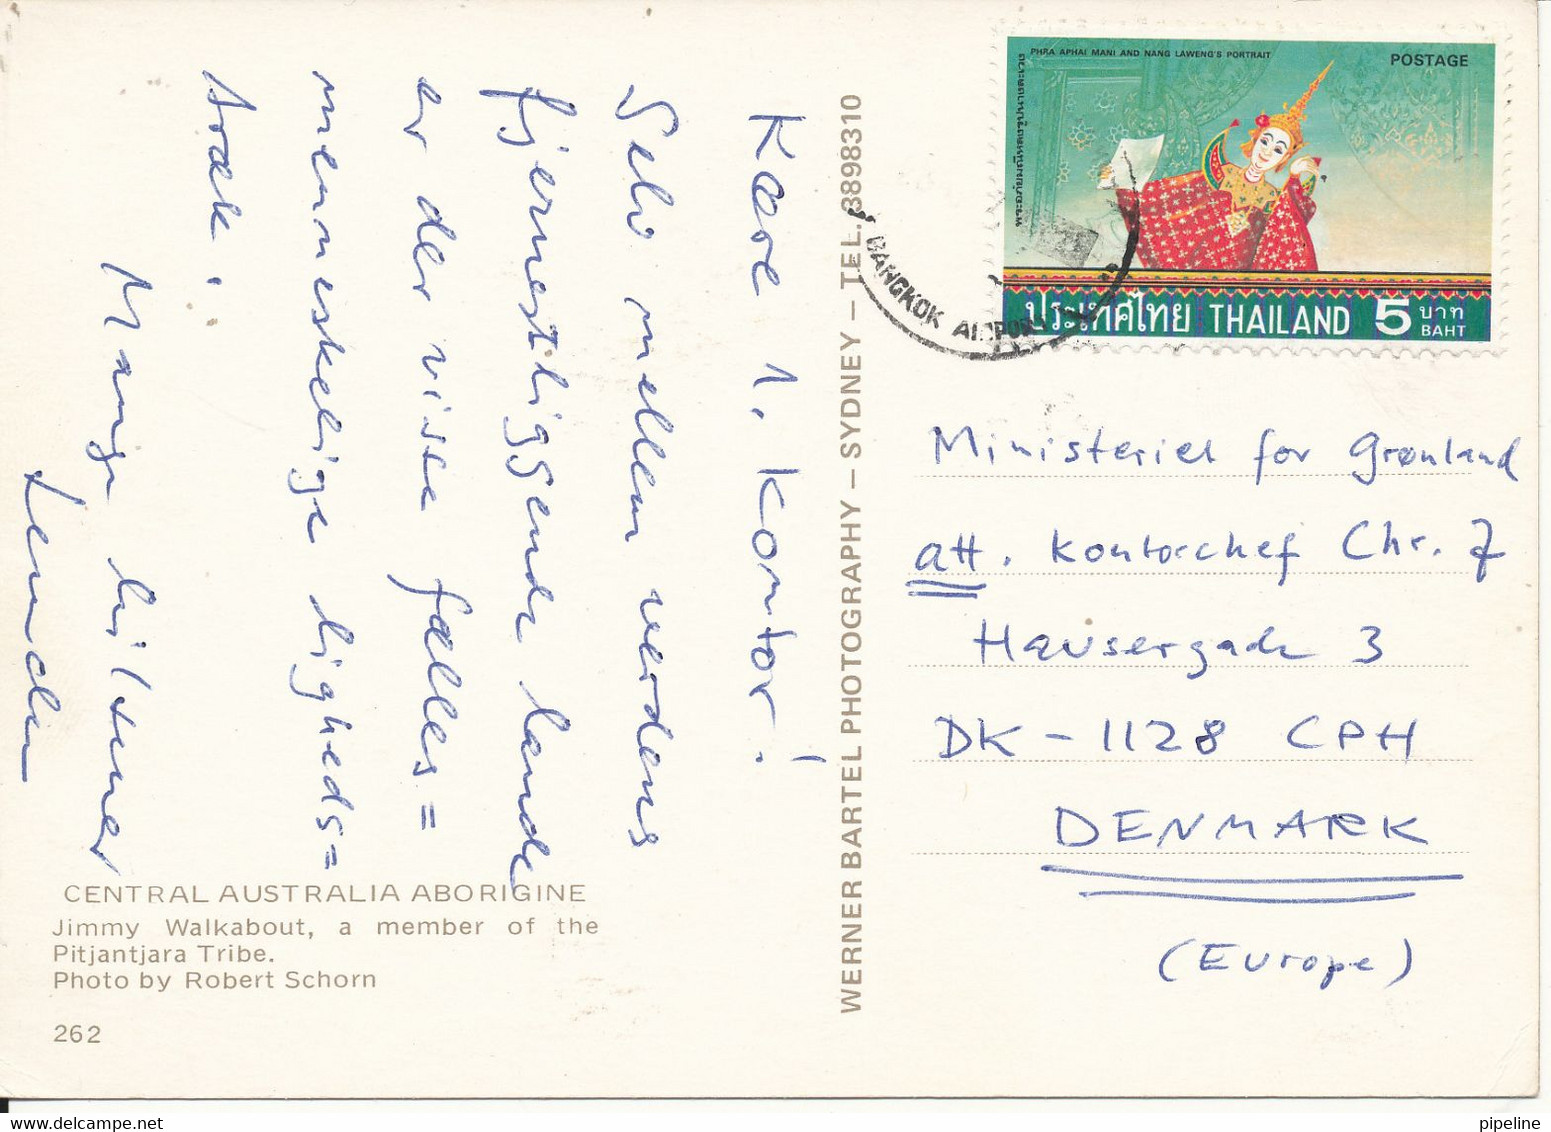 Kære 1. Kontor!
Selv mellem verdens
fjernestliggende lande
er der visse fælles=
menneskelige ligheds=
træk.
Mange hilsener
PHRA APHAI MANI AND NANG LAWENG'S PORTRAIT
POSTAGE
ประเทศไทย THAILAND 5 บาท
BAHT
BANGKOK AIRPORT
WERNER BARTEL PHOTOGRAPHY – SYDNEY – TEL. 3898310
Ministeriet for Grønland
att. Kontorchef Chr.
Hausergade 3
DK - 1128 CPH
DENMARK
(Europe)
CENTRAL AUSTRALIA ABORIGINE
Jimmy Walkabout, a member of the
Pitjantjara Tribe.
Photo by Robert Schorn
262
pipeline